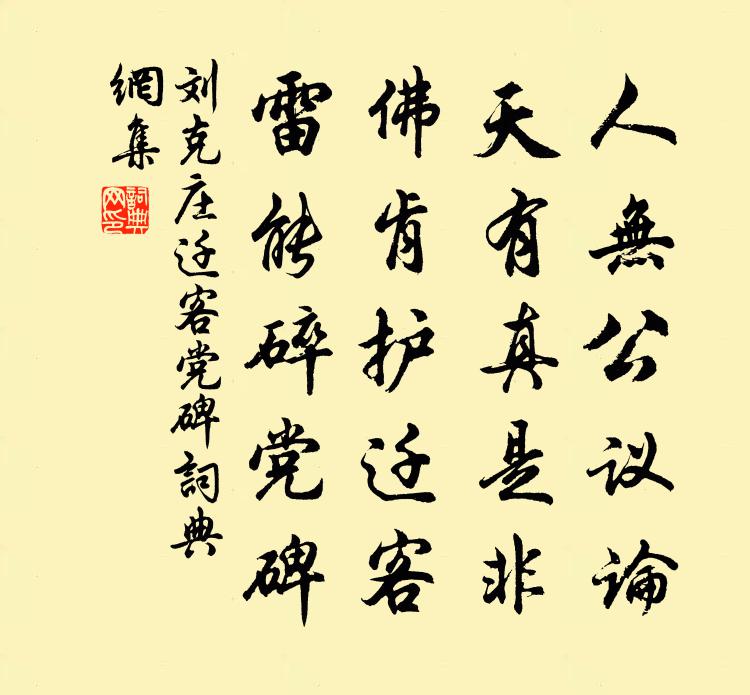 人無公议論
天有真是非
佛肯护迁客
雷能碎党碑
刘克庄迁客党碑詞典
網集
詞典
网印